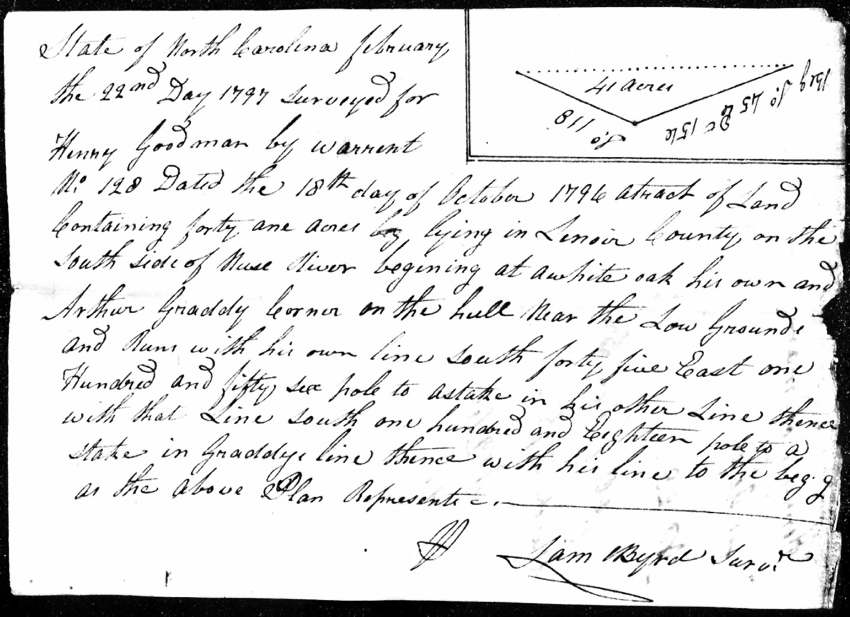 State of North Carolina February
the 22nd Day 1797 surveyed for
Henry Goodman by warrent
No 128 Dated the 18th day of October 1796 atract of Land
Containing forty one acres lying in Lenoir County on the
south side of Nuse River begining at awhite oak his own and
Arthur Graddy Corner on the hull Near the Low Grounds
and Runs with his own line south forty five East one
Hundred and fifty six pole to astake in his other Line thence
with that Line south one hundred and Eighteen pole to a
stake in Graddys line thence with his line to the beg.g
as the above Plan Represents
Sam Byrd Survr
41 acres
So 118
156
So 45
Beg